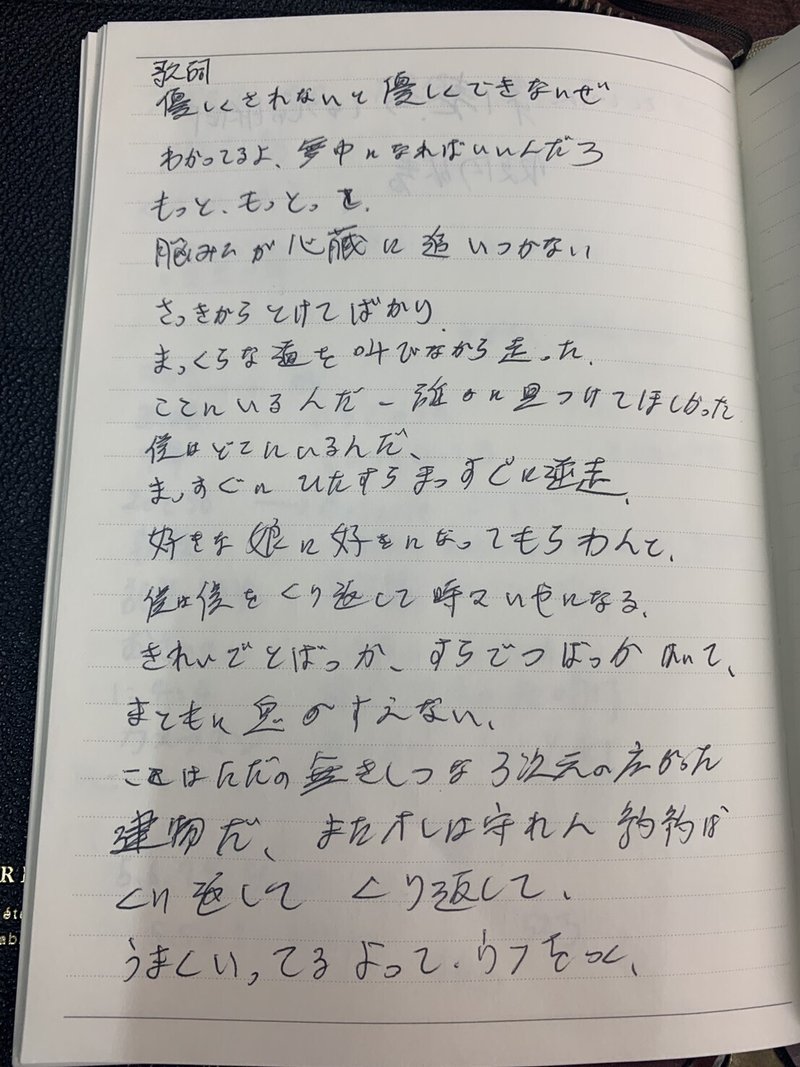 歌詞
優しくされないと優しくできないぜ
わかってるよ、夢中になればいいんだろ
もっと、もっとっと、
脳みそが心臓に追いつかない
さっきからとけてばかり
まっくらな道を叫びながら走った、
ここにいるんだー誰かに見つけてほしかった
僕はどこにいるんだ、
まっすぐにひたすらまっすぐに逆走、
好きな娘に好きになってもらわんと、
僕は僕をくり返して時々いやになる、
きれいごとばっか、すらごつばっかぬいて、
まともに息のすえない、
ここはただの無きしつな3次元の広がった
建物だ、またオレは守れん約束ば
くり返して くり返して、
うまくいってるよって、ウソをつく、
R